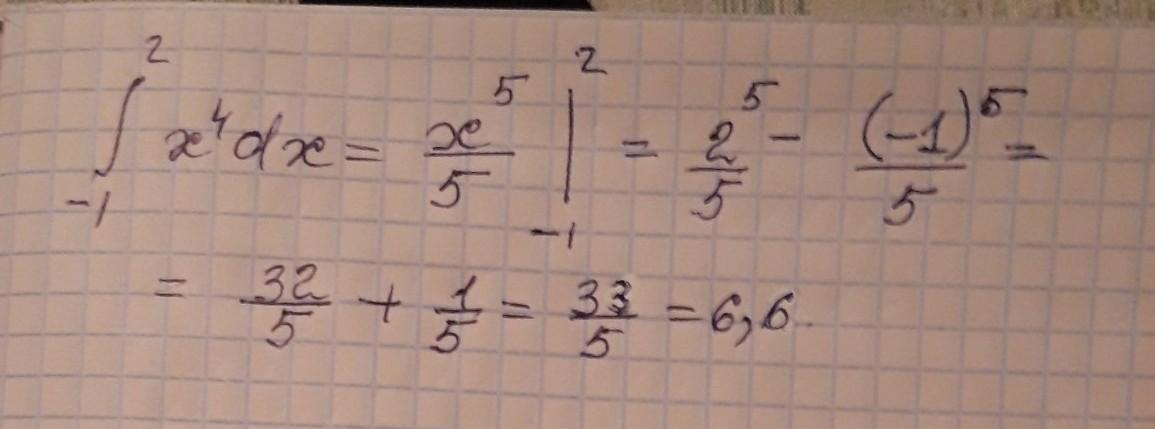 ∫₋₁² x⁴dx = x⁵/5 |₋₁² = 2⁵/5 - (-1)⁵/5 =
= 32/5 + 1/5 = 33/5 = 6,6.